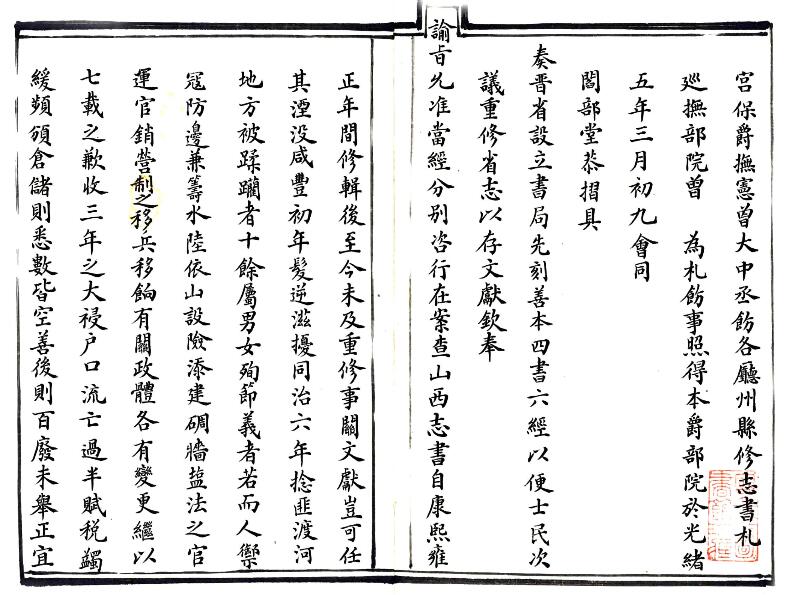 宮保爵撫憲曾大中丞飭各廳州縣修志書札
廵撫部院曾　為札飭事照得本爵部院於光緒
五年三月初九會同
閻部堂恭摺具
奏晉省設立書局先刻善本四書六經以便士民次
議重修省志以存文獻欽奉
諭旨允准當經分別咨行在案查山西志書自康熙雍
正年間修輯後至今未及重修事關文獻豈可任
其湮没咸豐初年髮逆滋擾同治六年捻匪渡河
地方被蹂躪者十餘屬男女殉節義者若而人禦
寇防邊兼籌水陸依山設險添建碉牆盐法之官
運官銷營制之移兵移餉有關政體各有變更繼以
七載之歉收三年之大祲戶口流亡過半賦税蠲
緩頻頒倉儲則悉數皆空善後則百廢未舉正宜